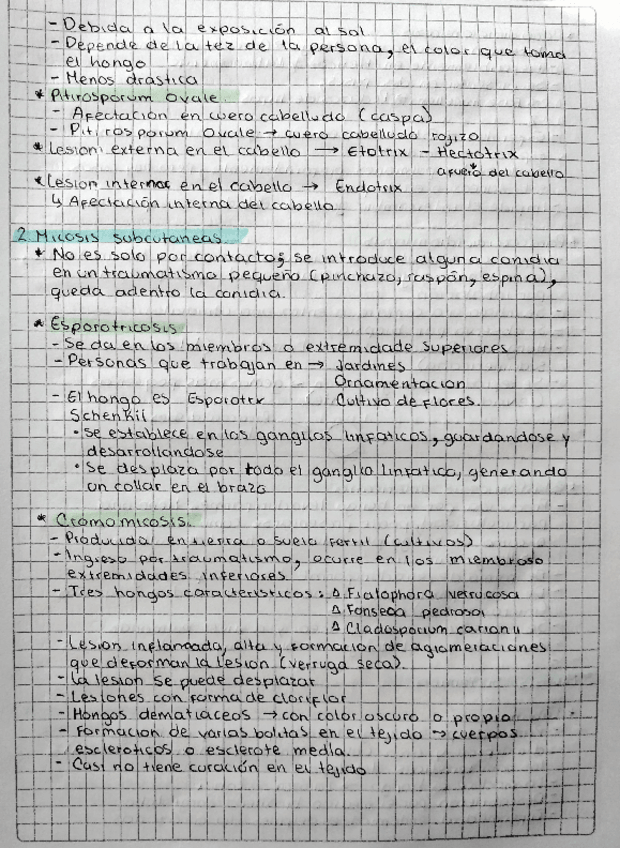 - Debida a la exposición al sol
- Depende de la tez de la persona, el color que toma
el hongo
- Menos drastica
* Pitirosporum Ovale
- Afectación en cuero cabelludo (caspa)
- Pitirosporum Ovale → cuero cabelludo rojizo
* Lesion externa en el cabello → Etotrix - Hectotrix
afuera del cabello
* Lesion interna en el cabello → Endotrix
↳ Afectación interna del cabello
2. Micosis subcutaneas
* No es solo por contacto, se introduce alguna conidia
en un traumatismo pequeño (pinchazo, raspón, espina),
queda adentro la conidia.
* Esporotricosis
- Se da en los miembros o extremidade superiores
- Personas que trabajan en → Jardines
Ornamentacion
- El hongo es Esporotrix Cultivo de flores.
Schenkil
• Se establece en los ganglios linfaticos, guardandose y
desarrollandose
• Se desplaza por todo el ganglio linfatico, generando
un collar en el brazo
* Cromomicosis.
- Producida en tierra o suelo fertil (cultivos)
- Ingreso por traumatismo, ocurre en los miembros o
extremidades inferiores
- Tres hongos caracteristicos: △ Fialophora verrucosa
△ Fonseca pedrosoi
△ Cladosporium carionii
- Lesion inflamada, alta y formacion de aglomeraciones
que deforman la lesion (verruga seca).
- La lesion se puede desplazar
- Lesiones con forma de cloriflor
- Hongos dematiaceos → con color oscuro o propio
- Formacion de varias bolitas en el tejido → cuerpos
escleroticos o esclerote media.
- Casi no tiene curación en el tejido